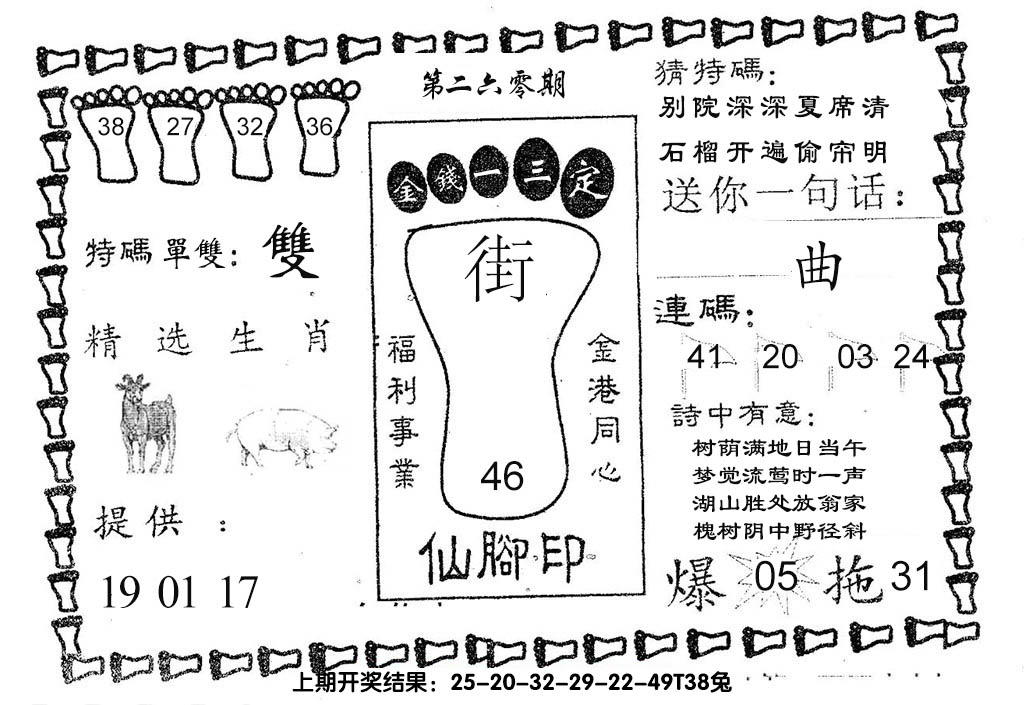 第二六零期
38 27 32 36
特碼單雙：雙
精选生肖
提供：
19 01 17
金錢一三定
街
福利事業
金港同心
46
仙腳印
猜特碼：
别院深深夏席清
石榴开遍偷帘明
送你一句话：
曲
連碼：
41 20 03 24
詩中有意：
树荫满地日当午
梦觉流莺时一声
湖山胜处放翁家
槐树阴中野径斜
爆 05 拖 31
上期开奖结果：25-20-32-29-22-49T38兔